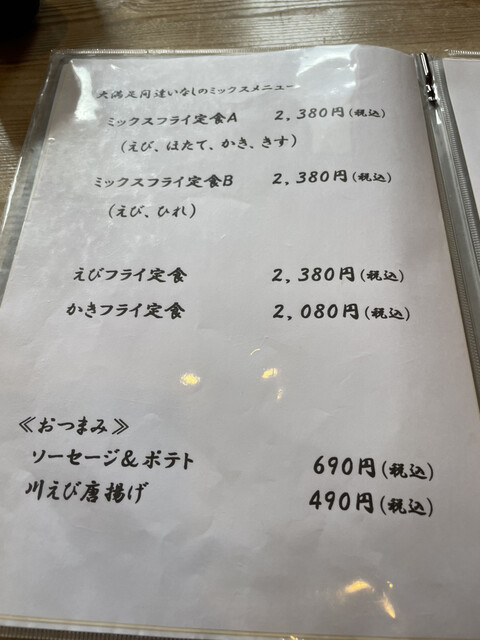 大満足間違いなしのミックスメニュー
ミックスフライ定食A 2,380円(税込)
(えび、ほたて、かき、きす)
ミックスフライ定食B 2,380円(税込)
(えび、ひれ)
えびフライ定食 2,380円(税込)
かきフライ定食 2,080円(税込)
≪おつまみ≫
ソーセージ&ポテト 690円(税込)
川えび唐揚げ 490円(税込)